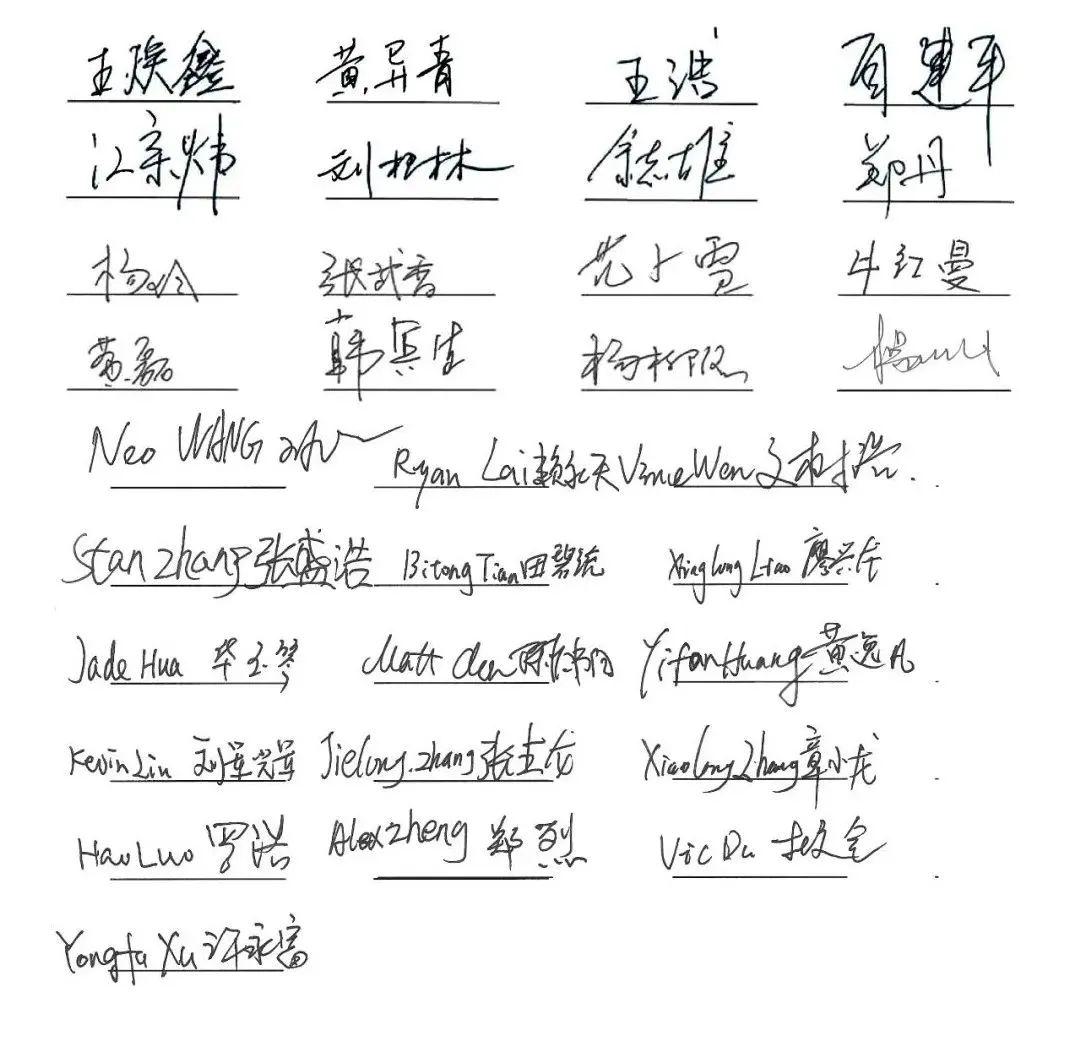 王焕鑫 黄异青 王浩 司建军
江宗炜 刘桂林 余志雄 郑丹
杨 张武香 牛红曼
黄磊 韩兵生 杨柳
Neo WANG Ryan Lai 赖 天 Vince Wen 文
Stan Zhang 张盛浩 Bitong Tian 田碧统 Xinglong Liao 廖兴龙
Jade Hua 华玉琴 Matt Chen 陈 Yifan Huang 黄逸凡
Kevin Liu 刘 Jielong.zhang 张杰龙 Xiaolong Zhang 章小龙
Hao Luo 罗浩 Alex zheng 郑烈 Vic Du
Yongfu Xu 许永富